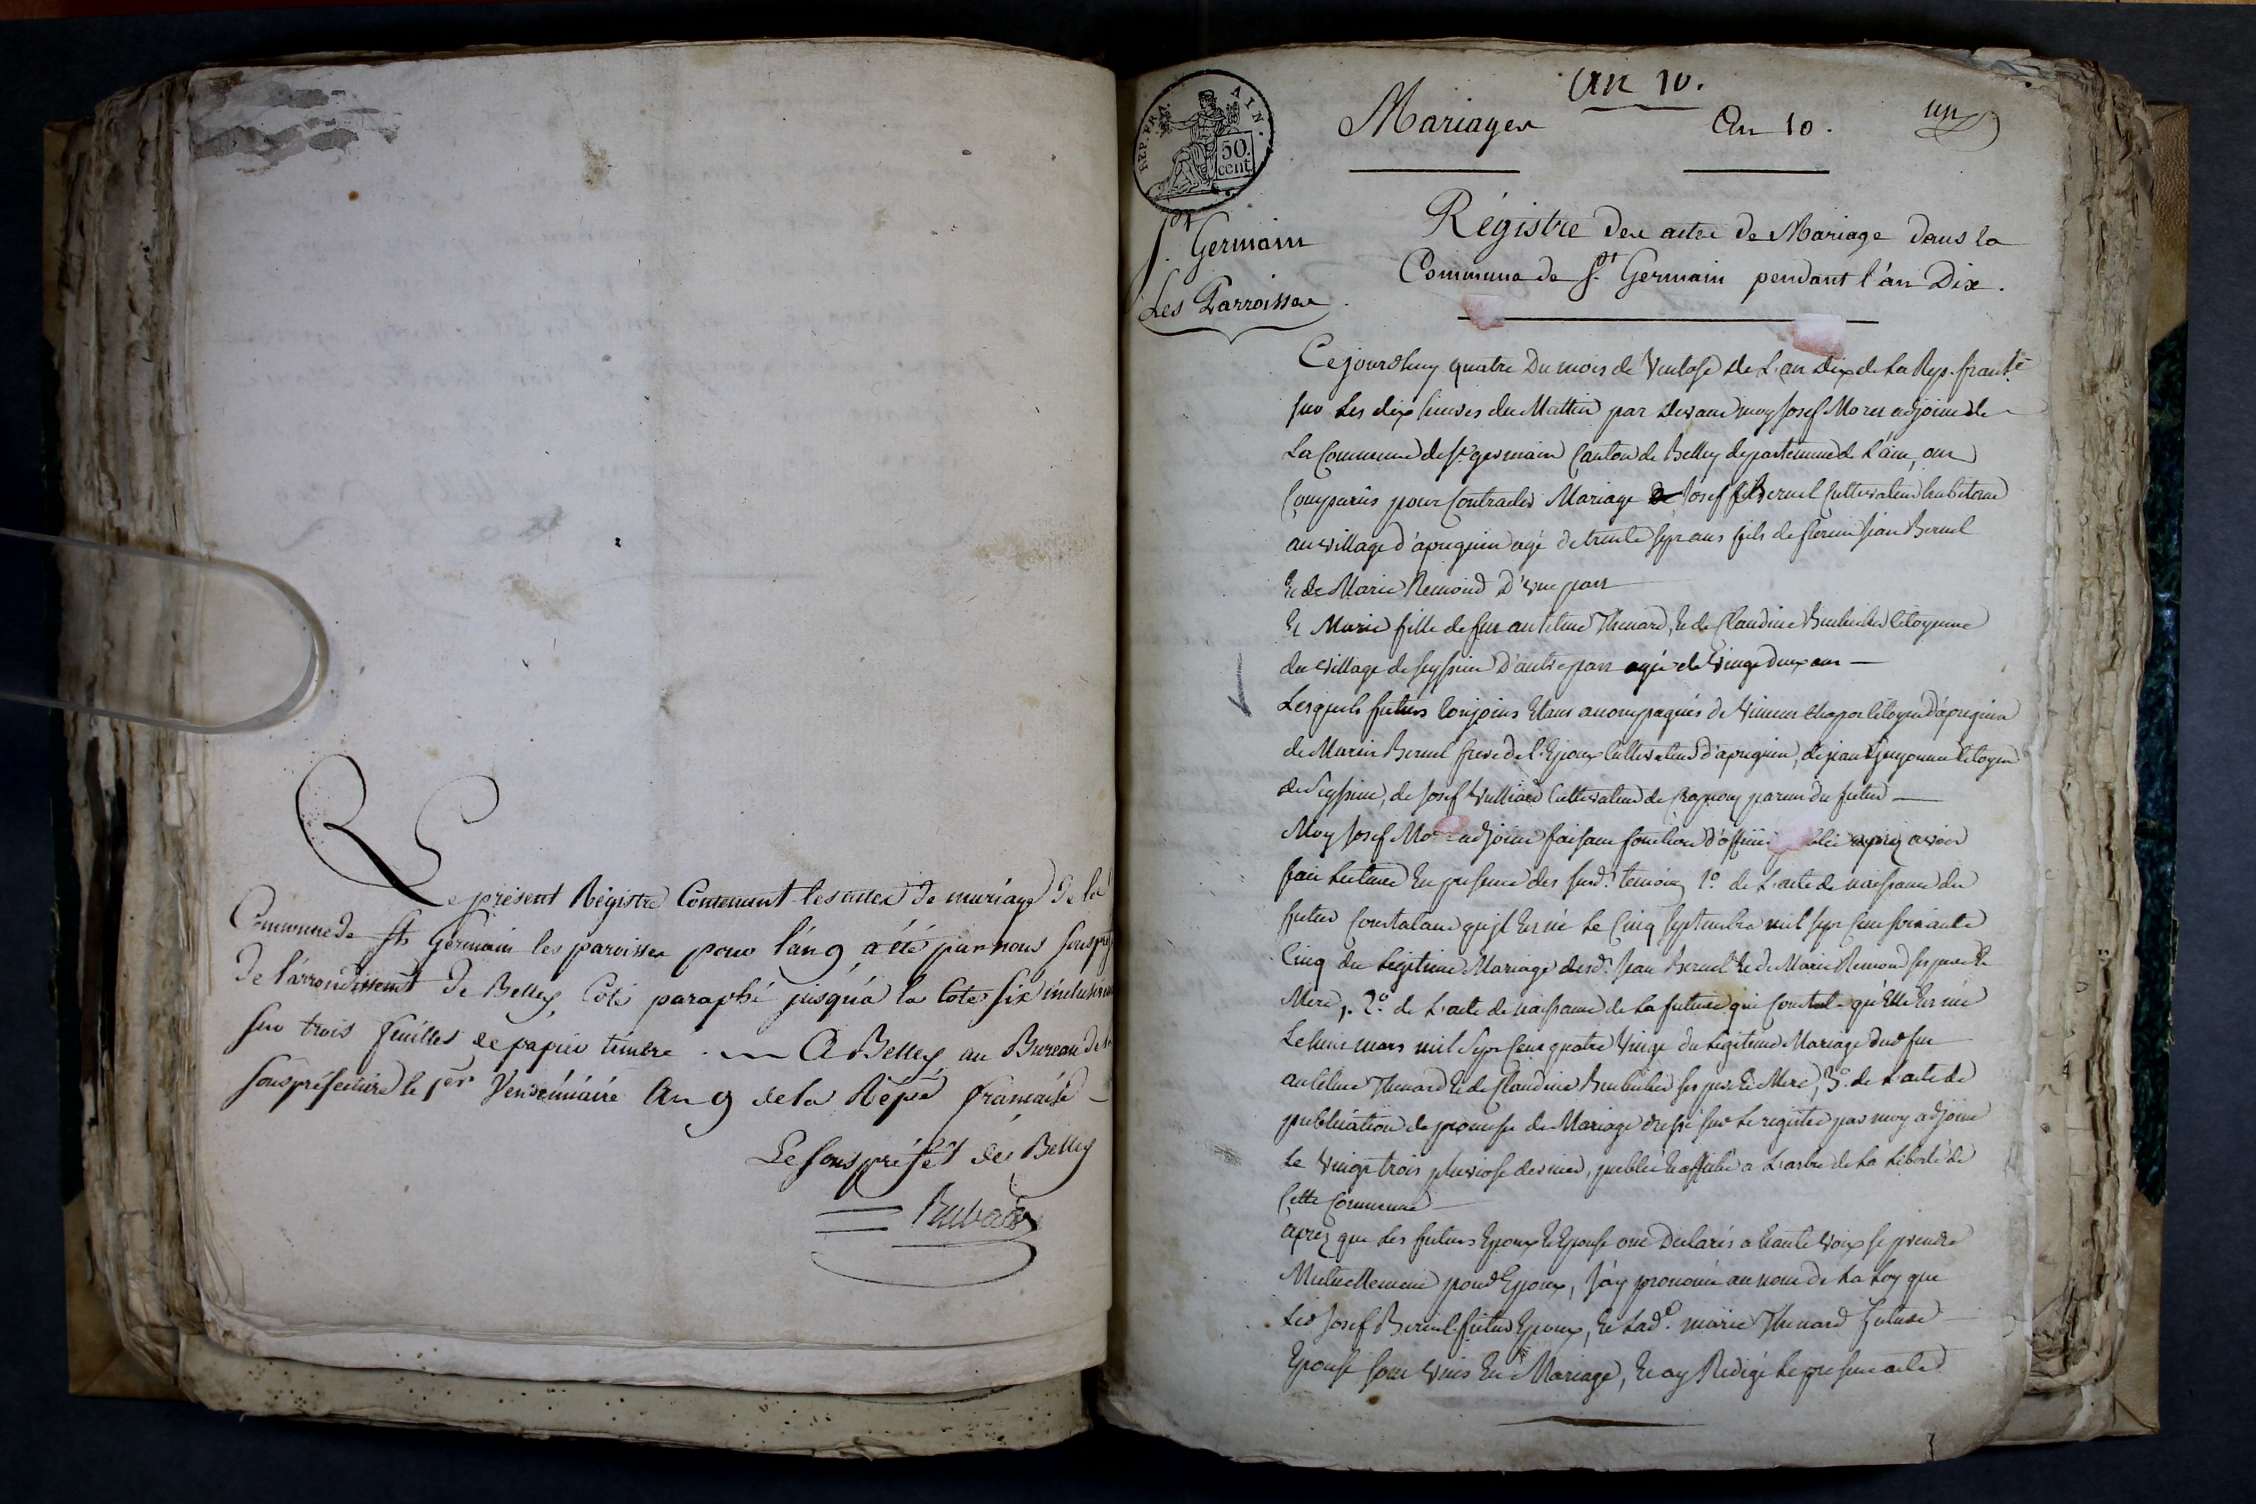 Le présent Régistre Contenant les actes de mariage de la
Commune de St Germain les paroisses pour l'an 9 a été par nous sous préf
de l'arrondissement de Belley, Coté paraphé jusqu'à la Cote six inclusivem
sur trois feuilles de papier timbré. A Belley au Bureau de la
souspréfecture le 1er Vendémiaire an 9 de la Répué française
Le sous préfet de Belley
REP. FRA. AIN.
50. cent.
An 10.
Mariages An 10. un
St Germain
Les Parroisses
Régistre des actes de Mariage dans la
Commune de St Germain pendant l'an Dix.
Cejourdhuy quatre du mois de Ventose de L'an dix de la Rep. franse
sur les dix heures du Mattin par devant moy Josef Moret adjoint de
La Commune de St germain Canton de Belley departement de l'ain, ont
Comparus pour Contracter Mariage Josef Bernel Cultivateur habitant
au village d'apregnin agé de trente sept ans fils de Jean Bernel
Et de Marie Remond D'une part
Et Marie fille de feu antelme Thenard, Et de Claudine citoyenne
du village de seyssieu D'autre part agée de Vingt deux ans
Lesquels futurs Conjoins Etant accompagnés de Vincent citoyen d'apregnin
de Marin Bernel frere de l'Epoux Cultivateur d'apregnin, de jean citoyen
de Seyssieu, de Josef Vulliard Cultivateur de parent du futur
Moy Josef adjoint faisant fonction d'officier aprez avoir
fait Lecture En presence des susd. temoins 1o. de L'acte de naissance du
futur Constatant qu'jl Est né le Cinq septembre mil sept Cent soixante
Cinq du Legitime Mariage desd. Jean Bernel Et de Marie Remond ses pere Et
Mere, 2o. de L'acte de naissance de la future qui Constate qu'Elle Est née
Le huit mars mil Sept Cent quatre Vingt du Legitime Mariage dud feu
antelme Thenard Et de Claudine ses pere Et Mere, 3o. de L'acte de
publication de promesse de Mariage dressé sur Le registre par moy adjoint
Le Vingt trois pluviose dernier, publié Et affiché a L'arbre de La Liberté de
Cette Commune
aprez que les futurs Epoux Et Epouse ont Declarés a haute voix se prendre
Mutuellement pour Epoux, j'ay prononcé au nom de La Loy que
Led Josef Bernel futur Epoux, Et Lade. marie Thenard future
Epouse sont unis En Mariage, Et ay Redigé Le present acte